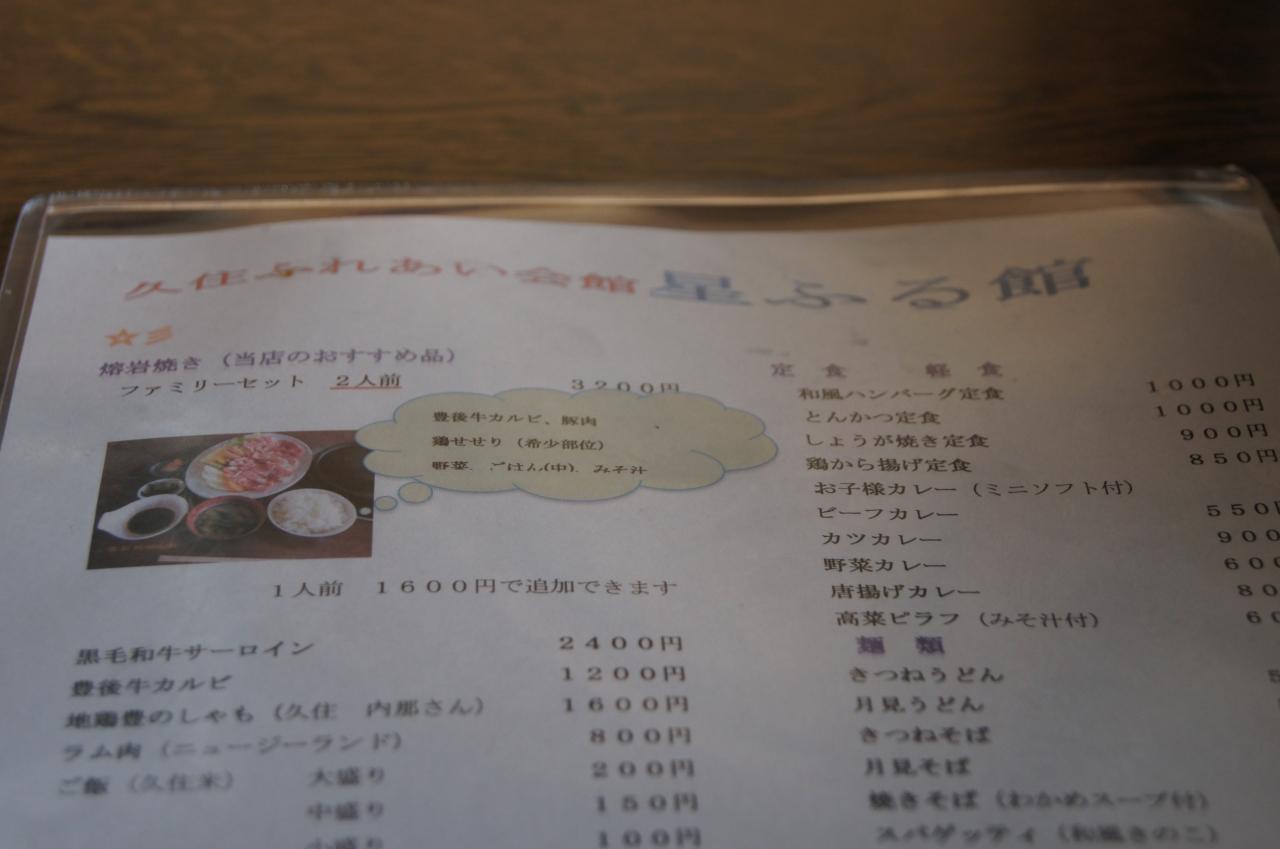 久住ふれあい会館 星ふる館
☆彡
熔岩焼き（当店のおすすめ品）
ファミリーセット　２人前　３２００円
豊後牛カルビ、豚肉
鶏せせり（希少部位）
野菜、ごはん(中)、みそ汁
１人前　１６００円で追加できます
黒毛和牛サーロイン　２４００円
豊後牛カルビ　１２００円
地鶏豊のしゃも（久住　内那さん）　１６００円
ラム肉（ニュージーランド）　８００円
ご飯（久住米）　大盛り　２００円
中盛り　１５０円
小盛り　１００円
定　食　　軽　食
和風ハンバーグ定食　１０００円
とんかつ定食　１０００円
しょうが焼き定食　９００円
鶏から揚げ定食　８５０円
お子様カレー（ミニソフト付）
ビーフカレー　５５０
カツカレー　９００
野菜カレー　６００
唐揚げカレー　８０
高菜ピラフ（みそ汁付）　６０
麺　類
きつねうどん
月見うどん
きつねそば
月見そば
焼きそば（わかめスープ付）
スパゲッティ（和風きのこ）